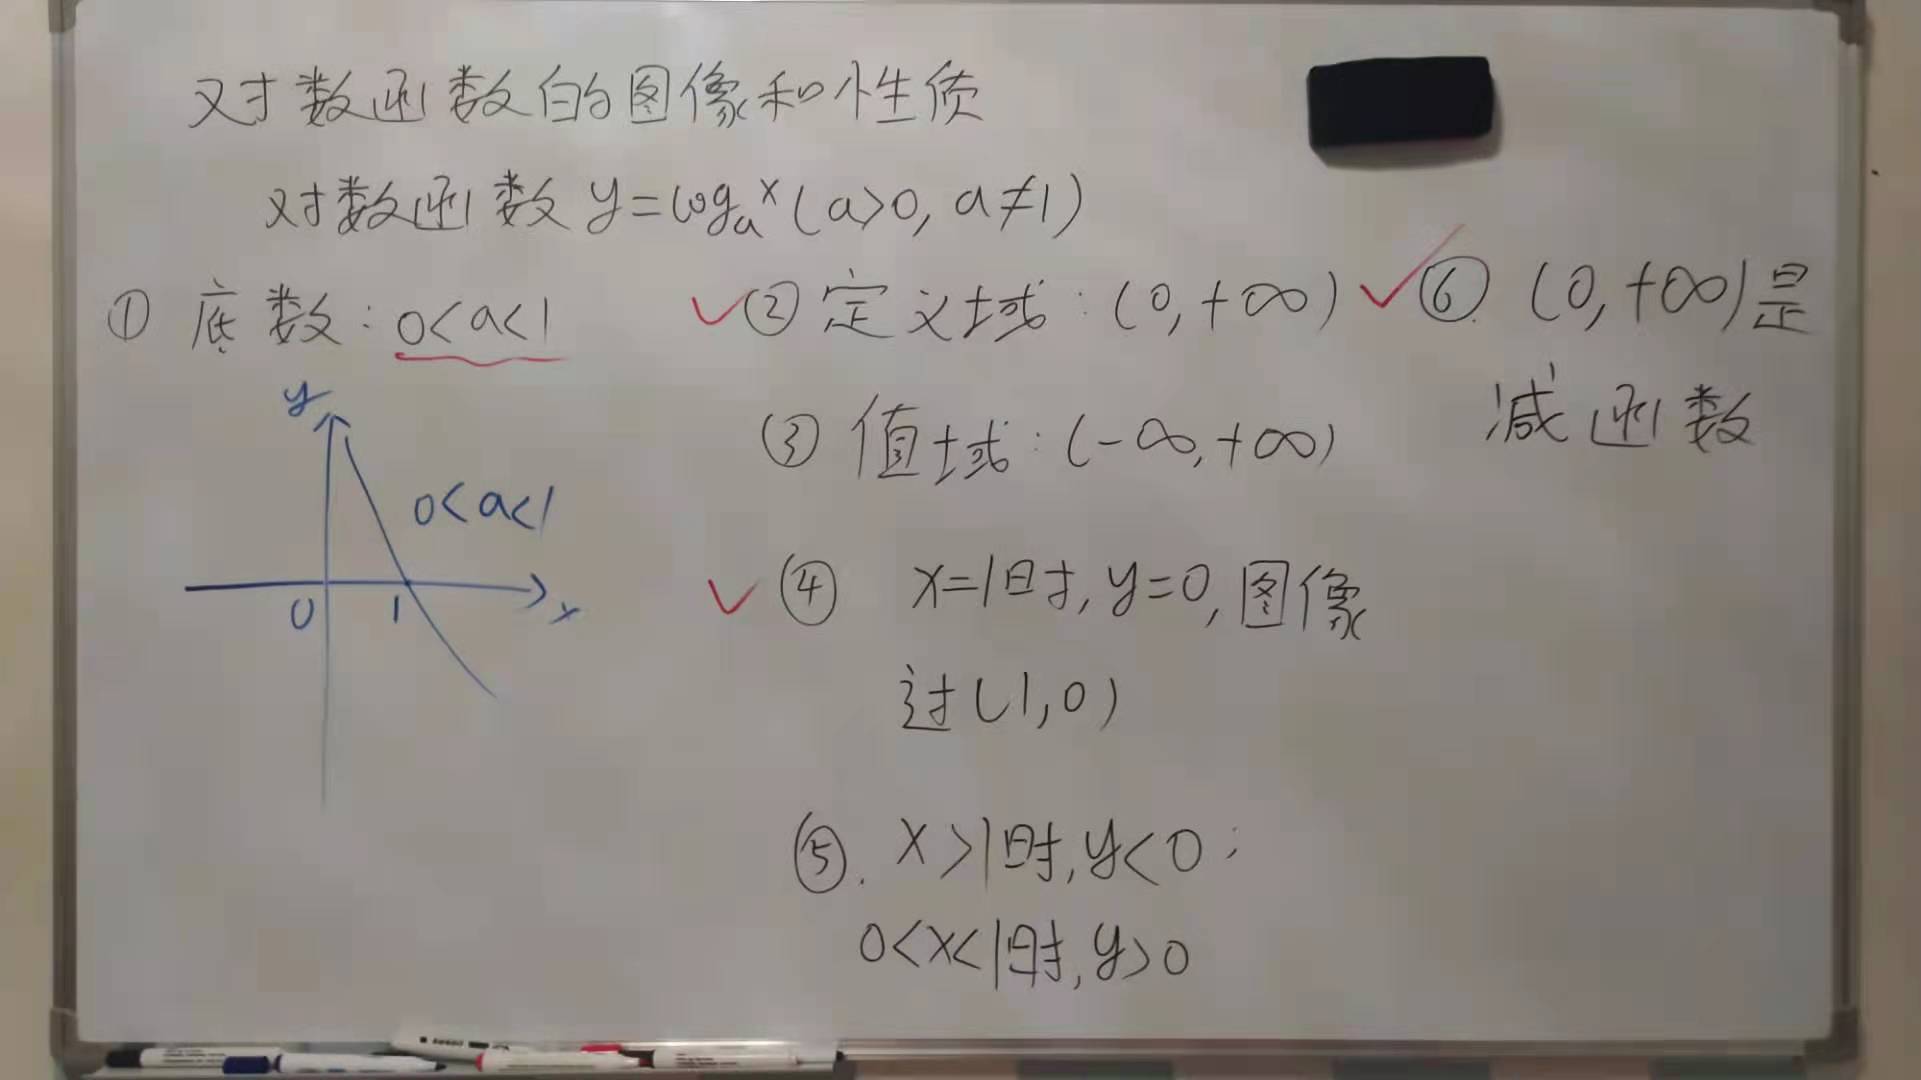 对数函数的图像和性质
对数函数 y=logₐx (a>0, a≠1)
① 底数: 0<a<1
y
0<a<1
0 1 x
② 定义域: (0, +∞)
③ 值域: (-∞, +∞)
④ x=1时, y=0, 图像
过(1,0)
⑤. x>1时, y<0;
0<x<1时, y>0
⑥. (0, +∞)是
减函数